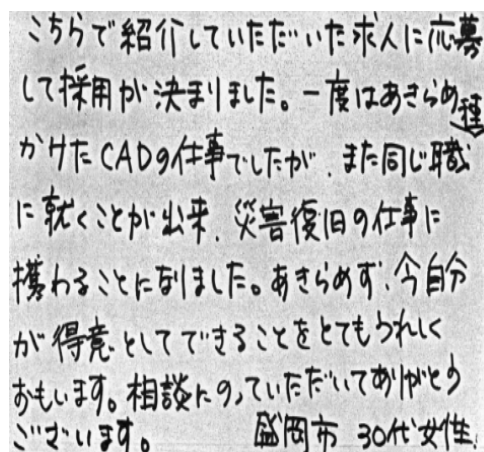 こちらで紹介していただいた求人に応募
して採用が決まりました。一度はあきらめ
かけたCADの仕事でしたが、また同じ職種
に就くことが出来、災害復旧の仕事に
携わることになりました。あきらめず、今自分
が得意としてできることをとてもうれしく
おもいます。相談にのっていただいてありがとう
ございます。 盛岡市 30代女性